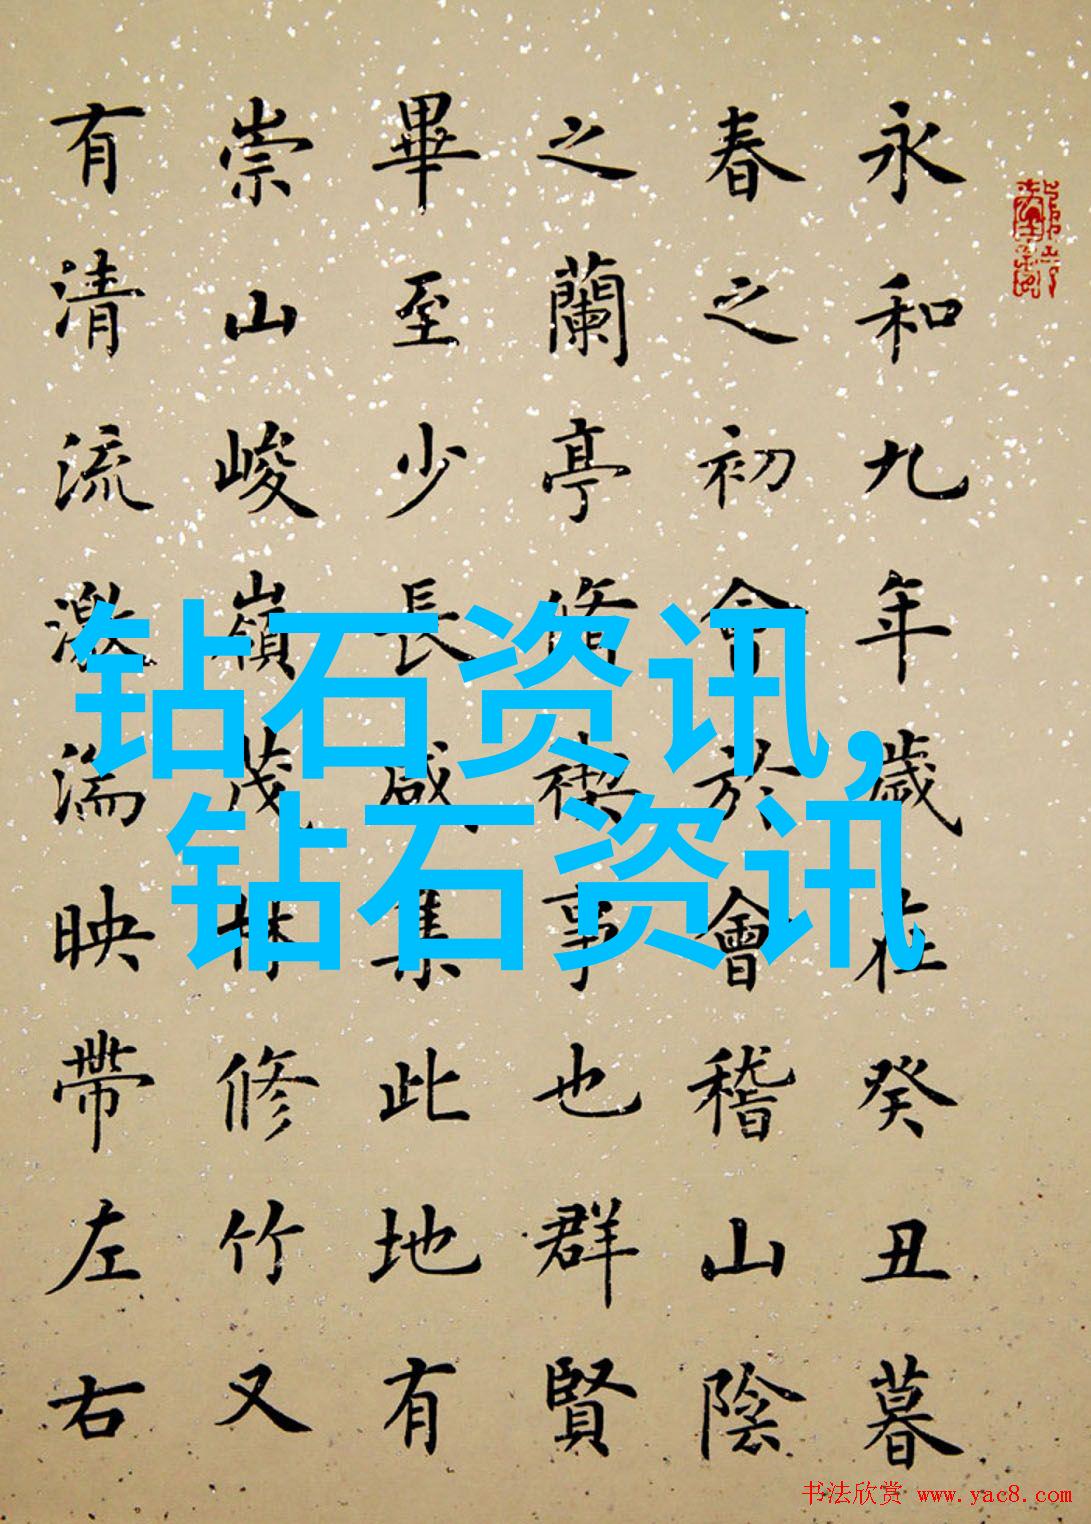 永和九年歲在癸丑暮
春之初会於會稽山陰
之蘭亭脩禊事也群賢
畢至少長咸集此地有
崇山峻嶺茂林修竹又
有清流激湍映帶左右
钻石资讯,
钻石资讯
书法欣赏 www.yac8.com